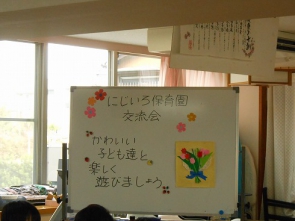 にじいろ保育園
交流会
かわいい
子ども達と
楽しく
遊びましょう